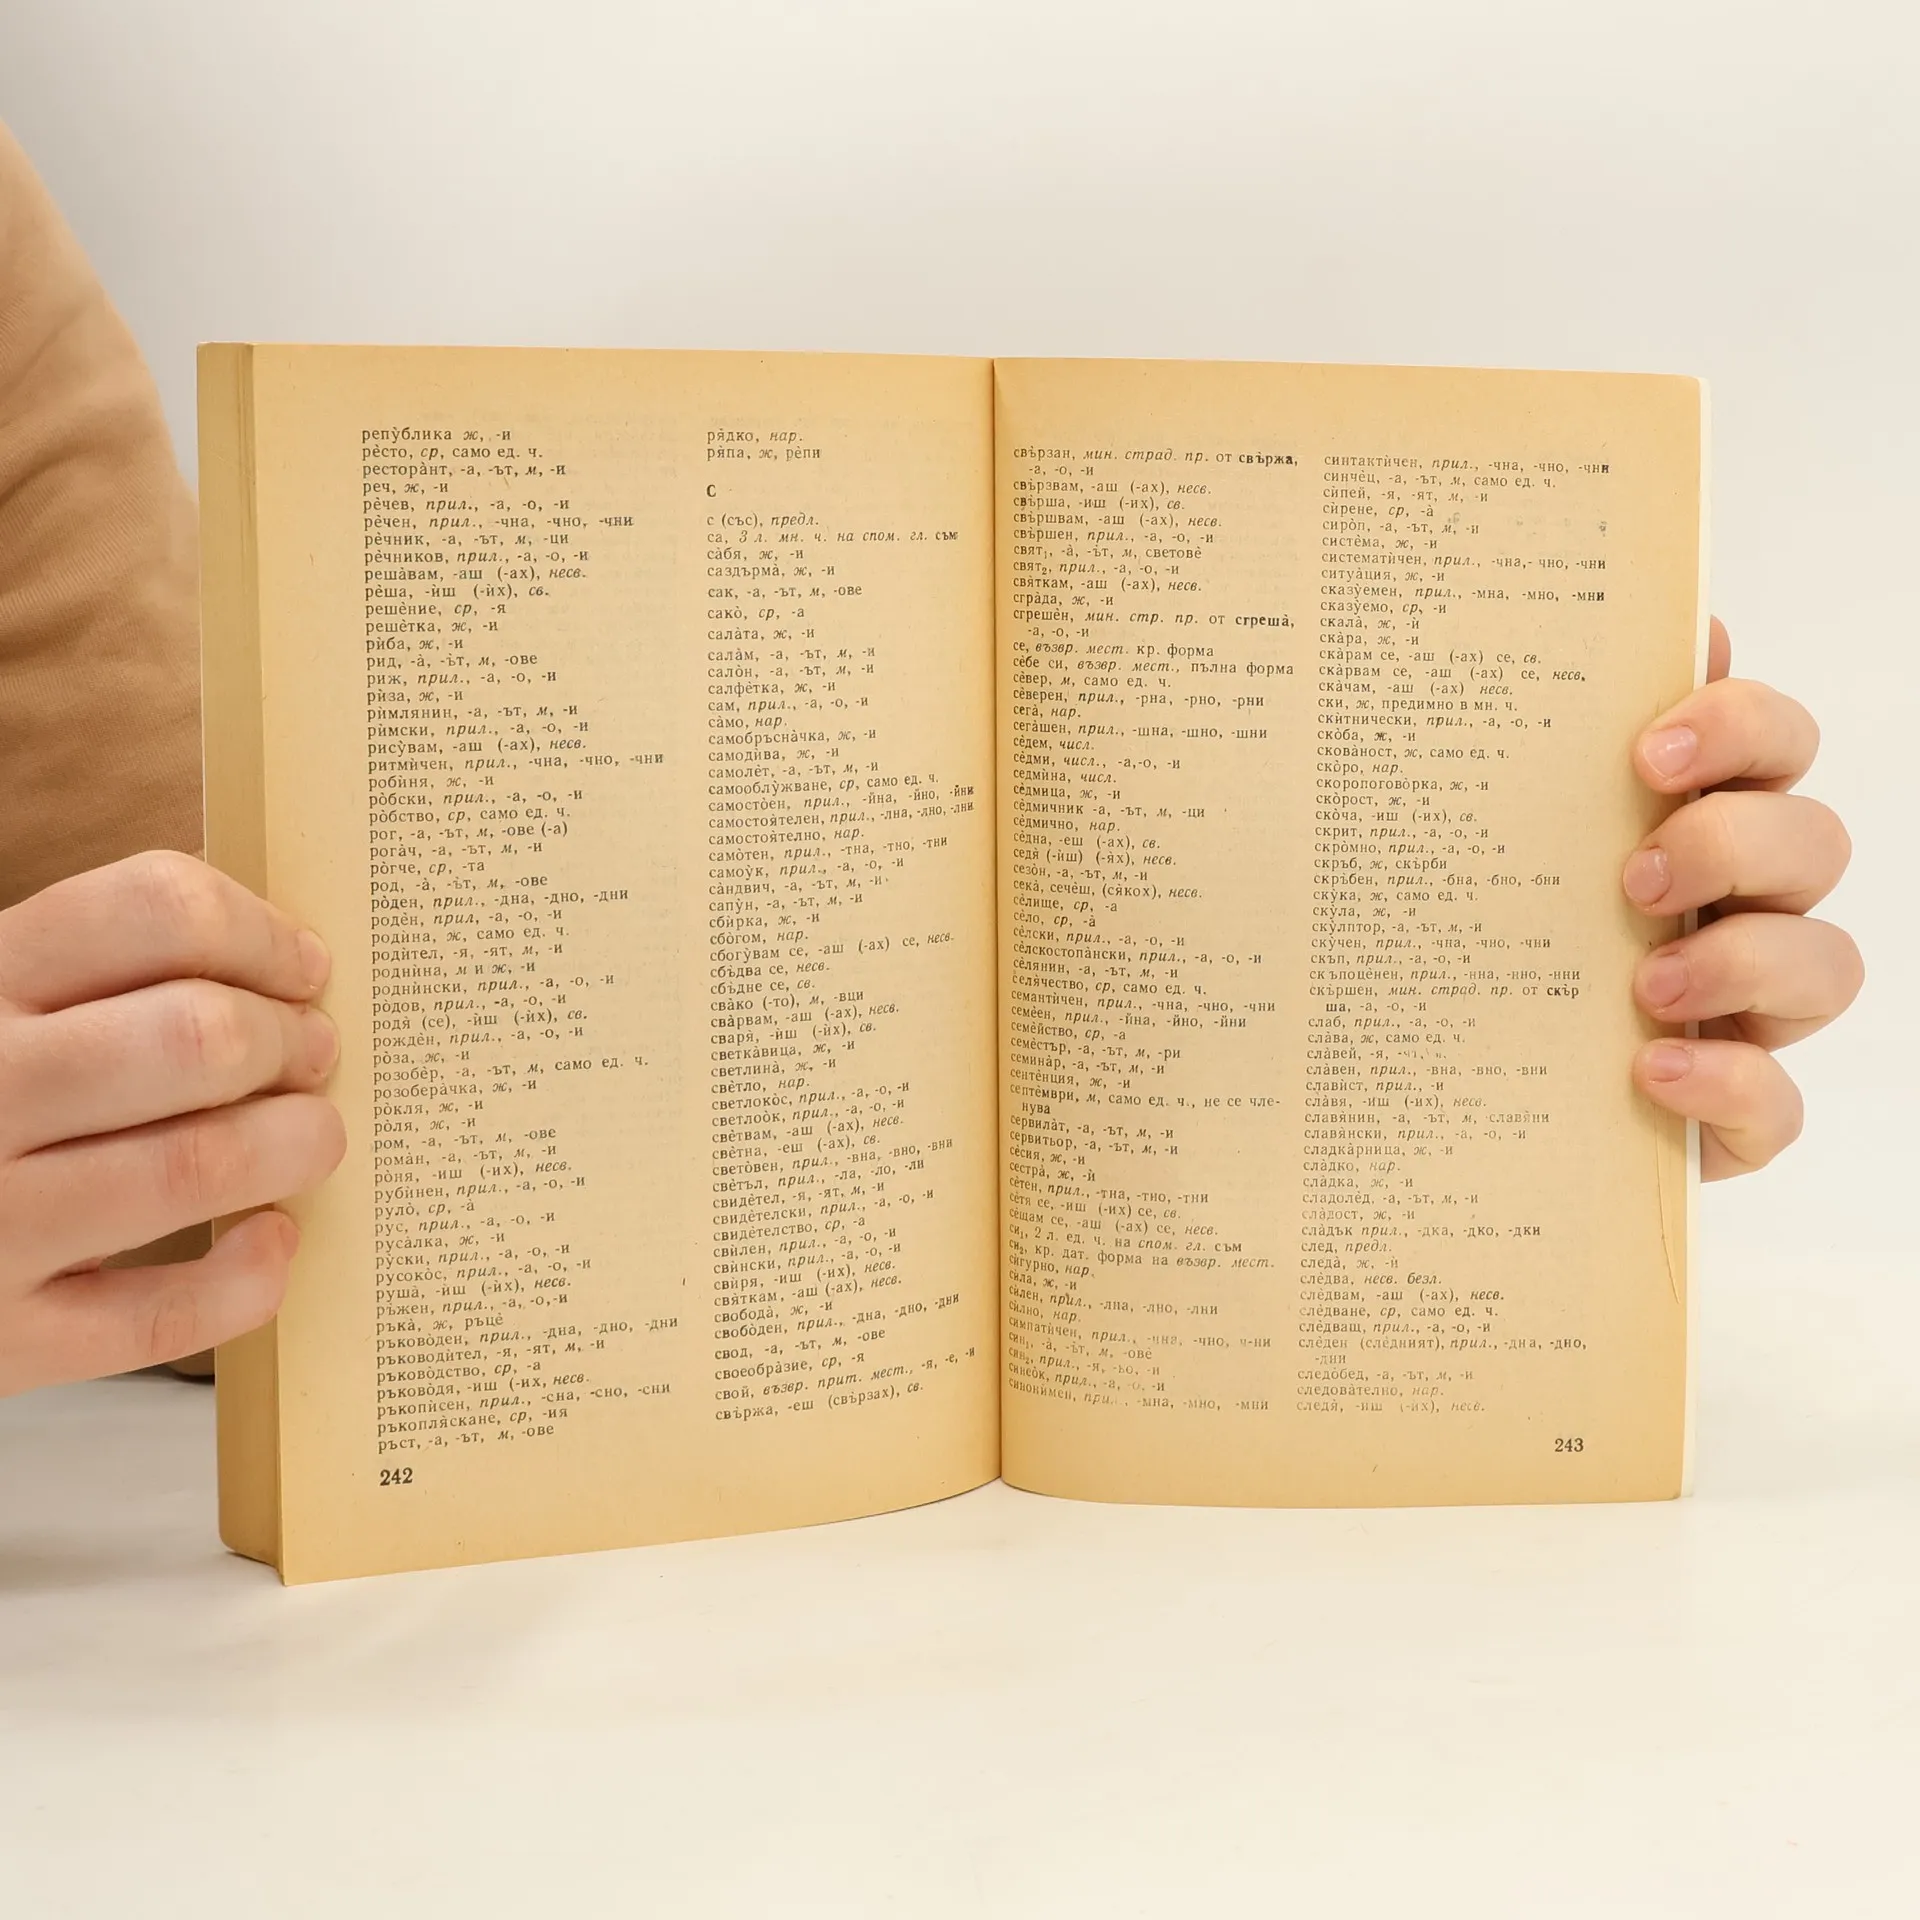 репу̀блика ж, -и
рѐсто, ср, само ед. ч.
рестора̀нт, -а, -ът, м, -и
реч, ж, -и
рѐчев, прил., -а, -о, -и
рѐчен, прил., -чна, -чно, -чни
рѐчник, -а, -ът, м, -ци
рѐчников, прил., -а, -о, -и
реша̀вам, -аш (-ах), несв.
рѐша, -ѝш (-ѝх), св.
решѐние, ср, -я
решѐтка, ж, -и
рѝба, ж, -и
рид, -а̀, -ъ̀т, м, -ове
риж, прил., -а, -о, -и
рѝза, ж, -и
рѝмлянин, -а, -ът, м, -и
рѝмски, прил., -а, -о, -и
рису̀вам, -аш (-ах), несв.
ритмѝчен, прил., -чна, -чно, -чни
робѝня, ж, -и
ро̀бски, прил., -а, -о, -и
ро̀бство, ср, само ед. ч.
рог, -а, -ът, м, -ове (-а)
рога̀ч, -а, -ът, м, -и
ро̀гче, ср, -та
род, -а̀, -ъ̀т, м, -ове
ро̀ден, прил., -дна, -дно, -дни
родѐн, прил, -а, -о, -и
родѝна, ж, само ед. ч.
родѝтел, -я, -ят, м, -и
роднѝна, м и ж, -и
роднѝнски, прил., -а, -о, -и
ро̀дов, прил., -а, -о, -и
родя̀ (се), -ѝш (-ѝх), св.
рождѐн, прил., -а, -о, -и
ро̀за, ж, -и
розобѐр, -а, -ът, м, само ед. ч.
розобера̀чка, ж, -и
ро̀кля, ж, -и
ро̀ля, ж, -и
ром, -а, -ът, м, -ове
рома̀н, -а, -ът, м, -и
ро̀ня, -иш (-их), несв.
рубѝнен, прил., -а, -о, -и
руло̀, ср, -а̀
рус, прил., -а, -о, -и
руса̀лка, ж, -и
ру̀ски, прил., -а, -о, -и
русоко̀с, прил., -а, -о, -и
руша̀, -ѝш (-ѝх), несв.
ръ̀жен, прил., -а, -о,-и
ръка̀, ж, ръцѐ
ръково̀ден, прил., -дна, -дно, -дни
ръководѝтел, -я, -ят, м, -и
ръково̀дство, ср, -а
ръково̀дя, -иш (-их, несв.
ръкопѝсен, прил., -сна, -сно, -сни
ръкопля̀скане, ср, -ия
ръст, -а, -ът, м, -ове
242
ря̀дко, нар.
ря̀па, ж, рѐпи
С
с (със), предл.
са, 3 л. мн. ч. на спом. гл. съм
са̀бя, ж, -и
саздърма̀, ж, -и
сак, -а, -ът, м, -ове
сако̀, ср, -а
сала̀та, ж, -и
сала̀м, -а, -ът, м, -и
сало̀н, -а, -ът, м, -и
салфѐтка, ж, -и
сам, прил., -а, -о, -и
са̀мо, нар.
самобръсна̀чка, ж, -и
самодѝва, ж, -и
самолѐт, -а, -ът, м, -и
самооблу̀жване, ср, само ед. ч.
самосто̀ен, прил., -йна, -йно, -йни
самостоя̀телен, прил., -лна, -лно, -лни
самостоя̀телно, нар.
само̀тен, прил., -тна, -тно, -тни
самоу̀к, прил., -а, -о, -и
са̀ндвич, -а, -ът, м, -и
сапу̀н, -а, -ът, м, -и
сбѝрка, ж, -и
сбо̀гом, нар.
сбогу̀вам се, -аш (-ах) се, несв.
сбъ̀два се, несв.
сбъ̀дне се, св.
сва̀ко (-то), м, -вци
сва̀рвам, -аш (-ах), несв.
сваря̀, -ѝш (-ѝх), св.
светка̀вица, ж, -и
светлина̀, ж, -и
свѐтло, нар.
светлоко̀с, прил., -а, -о, -и
светлоо̀к, прил., -а, -о, -и
свѐтвам, -аш (-ах), несв.
свѐтна, -еш (-ах), св.
свето̀вен, прил., -вна, -вно, -вни
свѐтъл, прил., -ла, -ло, -ли
свидѐтел, -я, -ят, м, -и
свидѐтелски, прил., -а, -о, -и
свидѐтелство, ср, -а
свѝлен, прил., -а, -о, -и
свѝнски, прил., -а, -о, -и
свѝря, -иш (-их), несв.
свя̀ткам, -аш (-ах), несв.
свобода̀, ж, -и
свобо̀ден, прил., -дна, -дно, -дни
свод, -а, -ът, м, -ове
своеобра̀зие, ср, -я
свой, възвр. прит. мест., -я, -е, -и
свъ̀ржа, -еш (свъ̀рзах), св.
свъ̀рзан, мин. страд. пр. от свъ̀ржа,
-а, -о, -и
свъ̀рзвам, -аш (-ах), несв.
свъ̀рша, -иш (-их), св.
свъ̀ршвам, -аш (-ах), несв.
свъ̀ршен, прил., -а, -о, -и
свят₁, -а̀, -ъ̀т, м, световѐ
свят₂, прил., -а, -о, -и
свя̀ткам, -аш (-ах), несв.
сгра̀да, ж, -и
сгрешѐн, мин. стр. пр. от сгреша̀,
-а, -о, -и
се, възвр. мест. кр. форма
сѐбе си, възвр. мест., пълна форма
сѐвер, м, само ед. ч.
сѐверен, прил., -рна, -рно, -рни
сега̀, нар.
сега̀шен, прил., -шна, -шно, -шни
сѐдем, числ.
сѐдми, числ., -а,-о, -и
седмѝна, числ.
сѐдмица, ж, -и
сѐдмичник -а, -ът, м, -ци
сѐдмично, нар.
сѐдна, -еш (-ах), св.
седя̀ (-ѝш) (-я̀х), несв.
сезо̀н, -а, -ът, м, -и
сека̀, сечѐш, (ся̀кох), несв.
сѐлище, ср, -а
сѐло, ср, -а̀
сѐлски, прил., -а, -о, -и
сѐлскостопа̀нски, прил., -а, -о, -и
сѐлянин, -а, -ът, м, -и
селя̀чество, ср, само ед. ч.
семантѝчен, прил., -чна, -чно, -чни
семѐен, прил., -йна, -йно, -йни
семѐйство, ср, -а
семѐстър, -а, -ът, м, -ри
семина̀р, -а, -ът, м, -и
сентѐнция, ж, -и
септѐмври, м, само ед. ч., не се чле-
нува
сервила̀т, -а, -ът, м, -и
сервитьор, -а, -ът, м, -и
сѐсия, ж, -и
сестра̀, ж, -ѝ
сѐтен, прил., -тна, -тно, -тни
сѐтя се, -иш (-их) се, св.
сѐщам се, -аш (-ах) се, несв.
си₁, 2 л. ед. ч. на спом. гл. съм
си₂, кр. дат. форма на възвр. мест.
сѝгурно, нар.
сѝла, ж, -и
сѝлен, прил., -лна, -лно, -лни
сѝлно, нар.
симпатѝчен, прил., -чна, -чно, ч-ни
син₁, -а, -ът, м, -овѐ
син₂, прил., -я, -ьо, -и
синео̀к, прил., -а, -о, -и
синонѝмен, прил., -мна, -мно, -мни
синтактѝчен, прил., -чна, -чно, -чни
синчѐц, -а, -ът, м, само ед. ч.
сѝпей, -я, -ят, м, -и
сѝрене, ср, -а̀
сиро̀п, -а, -ът, м, -и
систѐма, ж, -и
систематѝчен, прил., -чна,- чно, -чни
ситуа̀ция, ж, -и
сказу̀емен, прил., -мна, -мно, -мни
сказу̀емо, ср, -и
скала̀, ж, -ѝ
ска̀ра, ж, -и
ска̀рам се, -аш (-ах) се, св.
ска̀рвам се, -аш (-ах) се, несв.
ска̀чам, -аш (-ах) несв.
ски, ж, предимно в мн. ч.
скѝтнически, прил., -а, -о, -и
ско̀ба, ж, -и
скова̀ност, ж, само ед. ч.
ско̀ро, нар.
скоропогово̀рка, ж, -и
ско̀рост, ж, -и
ско̀ча, -иш (-их), св.
скрит, прил., -а, -о, -и
скро̀мно, прил., -а, -о, -и
скръб, ж, скъ̀рби
скръ̀бен, прил., -бна, -бно, -бни
ску̀ка, ж, само ед. ч.
ску̀ла, ж, -и
ску̀лптор, -а, -ът, м, -и
ску̀чен, прил., -чна, -чно, -чни
скъп, прил., -а, -о, -и
скъпоцѐнен, прил., -нна, -нно, -нни
скъ̀ршен, мин. страд. пр. от скър
ша, -а, -о, -и
слаб, прил., -а, -о, -и
сла̀ва, ж, само ед. ч.
сла̀вей, -я,
сла̀вен, прил., -вна, -вно, -вни
славѝст, прил., -и
сла̀вя, -иш (-их), несв.
славя̀нин, -а, -ът, м, славя̀ни
славя̀нски, прил., -а, -о, -и
сладка̀рница, ж, -и
сла̀дко, нар.
сла̀дка, ж, -и
сладолѐд, -а, -ът, м, -и
сла̀дост, ж, -и
сла̀дък прил., -дка, -дко, -дки
след, предл.
следа̀, ж, -ѝ
слѐдва, несв. безл.
слѐдвам, -аш (-ах), несв.
слѐдване, ср, само ед. ч.
слѐдващ, прил., -а, -о, -и
слѐден (слѐдният), прил., -дна, -дно,
-дни
следо̀бед, -а, -ът, м, -и
следова̀телно, нар.
следя̀, -иш (-их), несв.
243